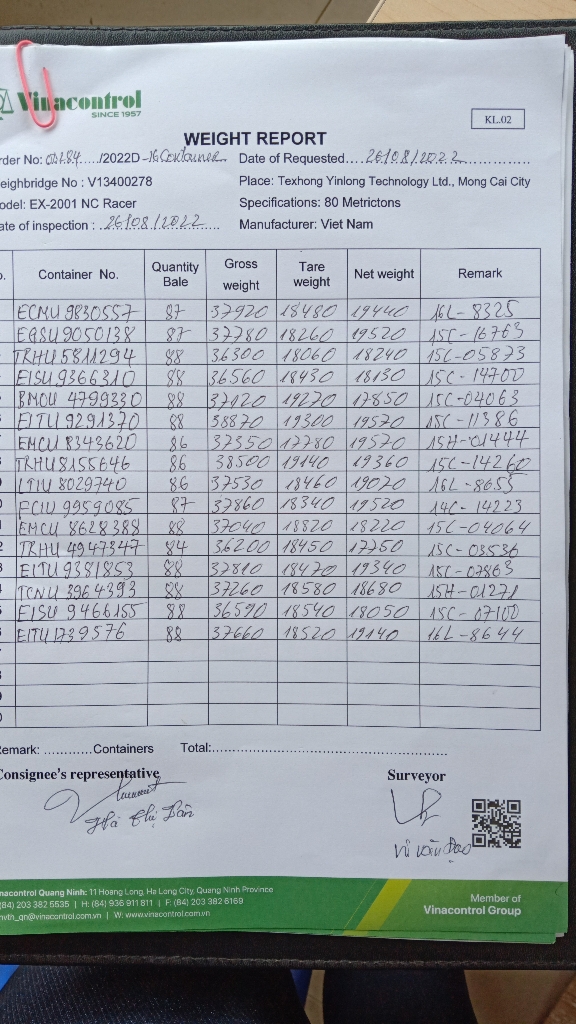 Vinacontrol
SINCE 1957
KL.02
WEIGHT REPORT
rder No: /2022D -16 Container Date of Requested....26/08/2022
eighbridge No : V13400278 Place: Texhong Yinlong Technology Ltd., Mong Cai City
odel: EX-2001 NC Racer Specifications: 80 Metrictons
ate of inspection : 26/08/2022 Manufacturer: Viet Nam
o. Container No. Quantity Bale Gross weight Tare weight Net weight Remark
ECMU 9830557 87 37920 18480 19440 16L-8325
EGSU 9050138 87 37780 18260 19520 15C-16763
TRHU 5811294 88 36300 18060 18240 15C-05873
EISU 9366310 88 36560 18430 18130 15C-14700
BMOU 4799330 88 37120 19270 17850 15C-04063
EITU 9291370 88 38870 19300 19570 15C-11386
EMCU 8343620 86 37350 17780 19570 15H-01444
TRHU 8155646 86 38500 19140 19360 15C-14260
LTIU 8029740 86 37530 18460 19070 16L-8655
FCIU 9959085 87 37860 18340 19520 14C-14223
EMCU 8628388 88 37040 18820 18220 15C-04064
TRHU 4947347 84 36200 18450 17750 15C-03536
EITU 9381853 88 37810 18470 19340 15C-07863
TCNU 3964393 88 37260 18580 18680 15H-01271
EISU 9466155 88 36590 18540 18050 15C-07100
EITU 1739576 88 37660 18520 19140 16L-8644
emark: ............Containers Total:......................................................
Consignee's representative Surveyor
Vũ Văn Đạo
nacontrol Quang Ninh: 11 Hoang Long, Ha Long City, Quang Ninh Province
(84) 203 382 5535 | H: (84) 936 911 811 | F: (84) 203 382 6169
nvth_qn@vinacontrol.com.vn | W: www.vinacontrol.com.vn
Member of
Vinacontrol Group